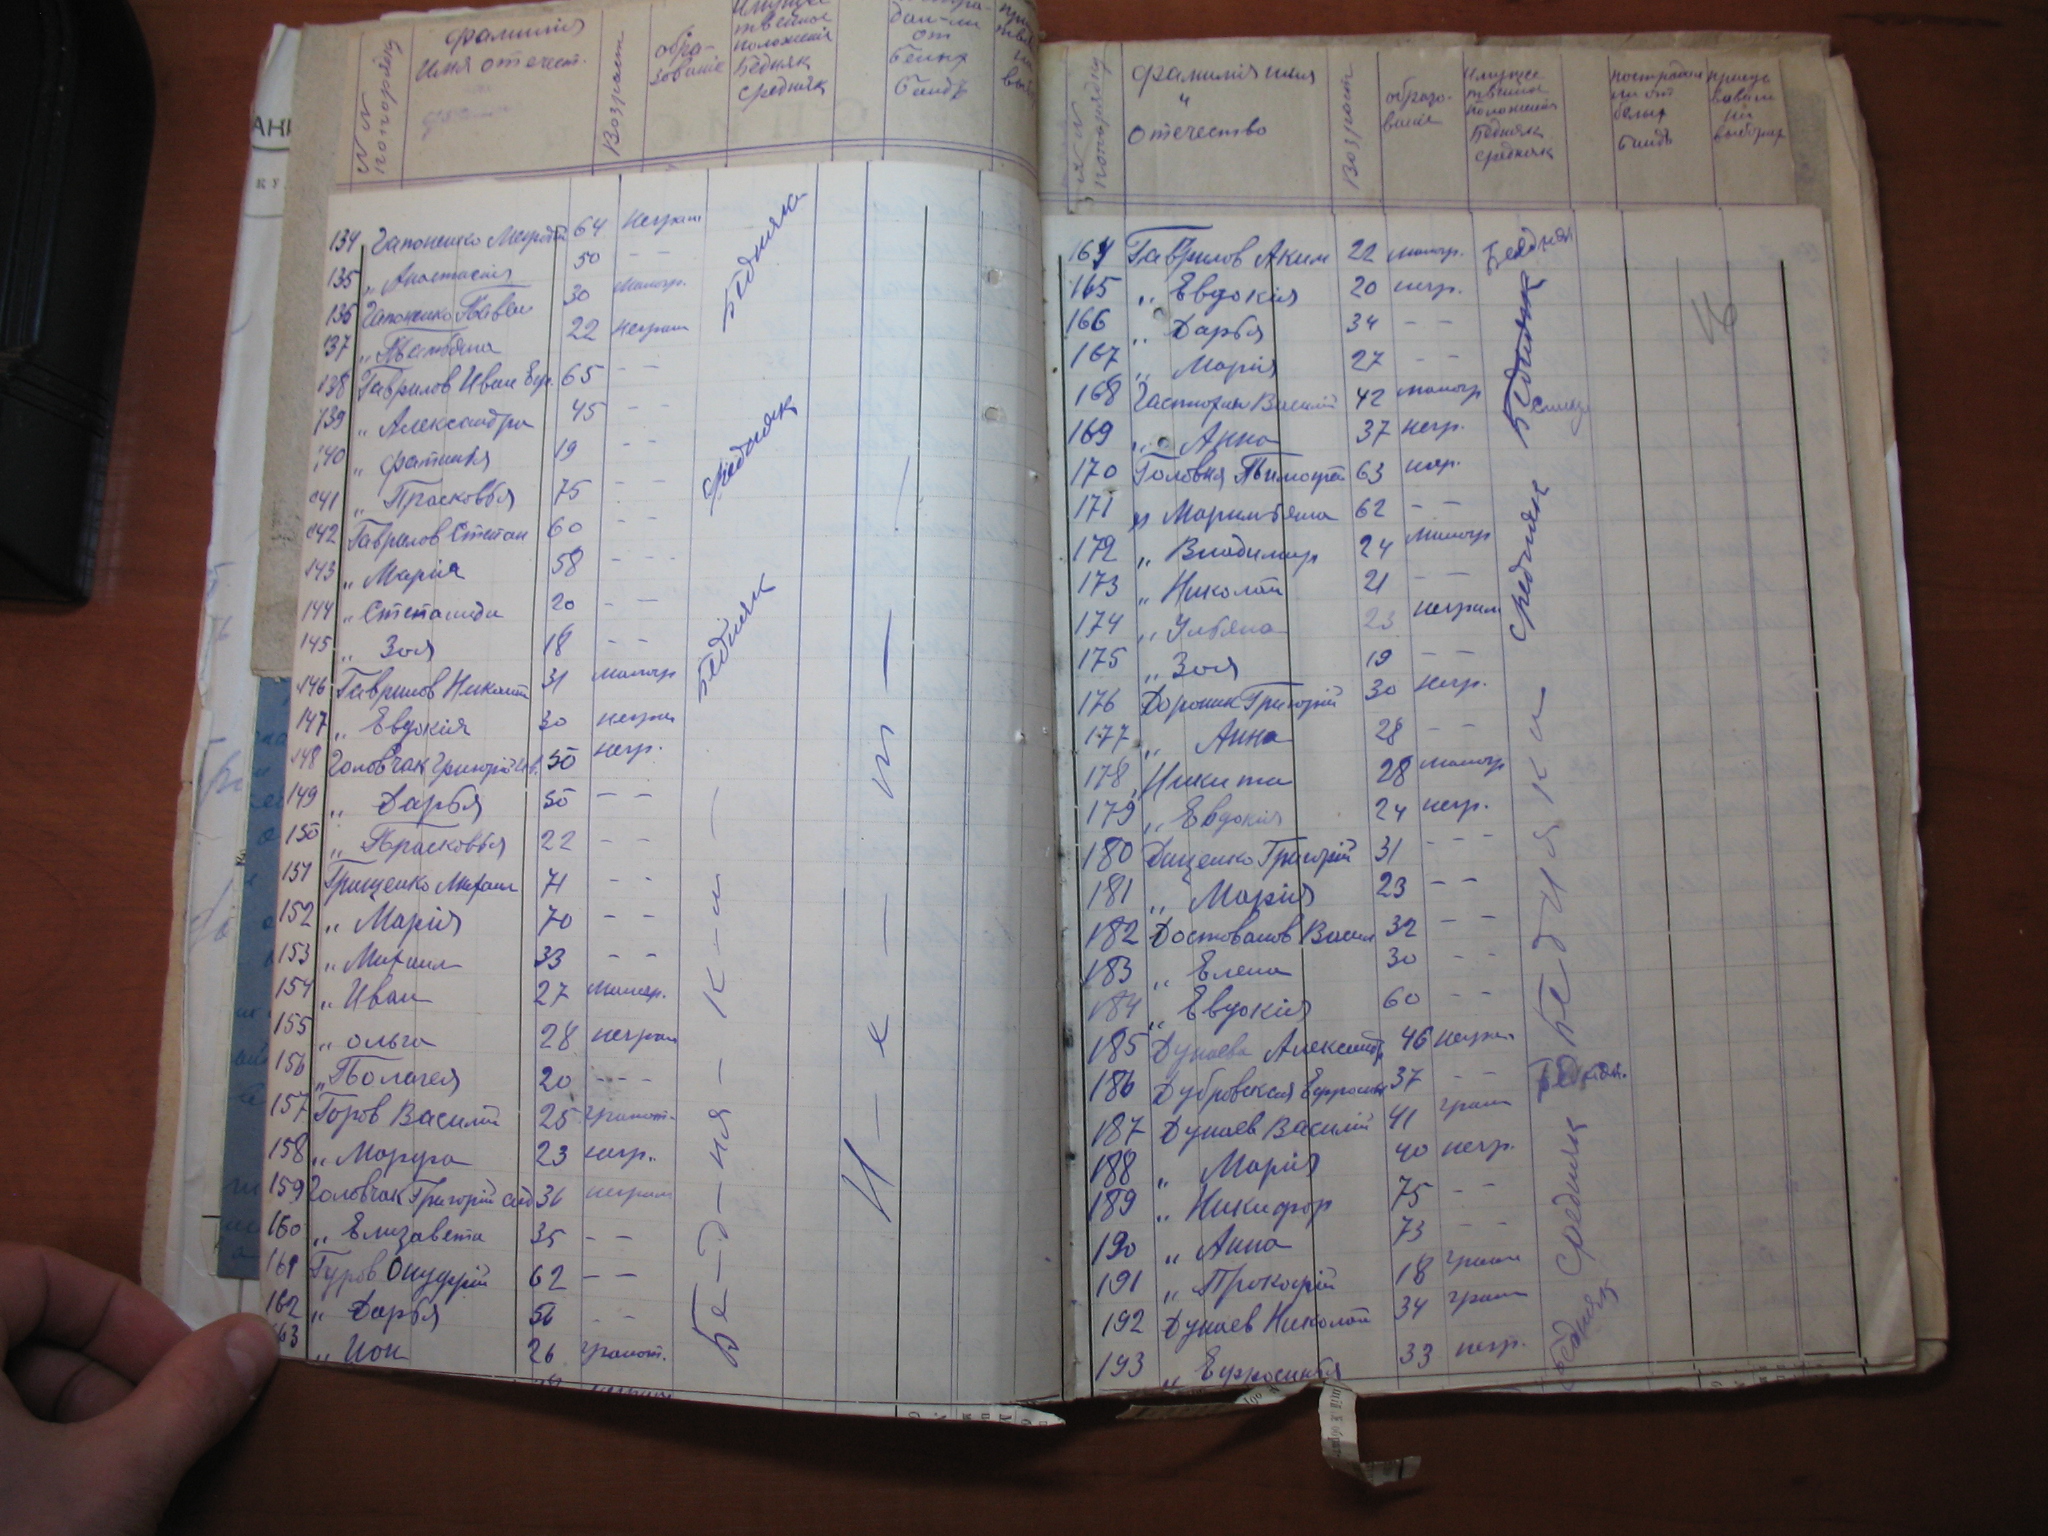 № № по порядку
фамилия
Имя отчест.
Возраст
обра-
зование
Имущес
твенное
положение
бедняк
средняк
от
банд
134 Гапоненко 64 неграм
135 " Анастасия 50 — —
136 Гапоненко Павел 30 малогр.
137 " Татьяна 22 неграм
138 Гаврилов Иван Егр. 65 — —
139 " Александра 45 — —
140 " фатинья 19
141 " Прасковья 75 — —
142 Гаврилов Степан 60 — —
143 " Марія 58 — —
144 " Степанида 20 — —
145 " Зоя 18 — —
146 Гаврилов Николай 31 малогр
147 " Евдокія 30 неграм
148 Головчак Григорій Ив. 50 негр.
149 " Дарья 50 — —
150 " Прасковья 22 — —
151 Грищенко Михаил 71 — —
152 " Марія 70 — —
153 " Михаил 33 — —
154 " Иван 27 малогр.
155 " ольга 28 неграм
156 " Полагея 20 — — —
157 Горов Василій 25 грамот.
158 " Марфа 23 негр.
159 Головчак Григорій 36 неграм
160 " Елизавета 35 — —
161 Гуров Онуфрій 62 — —
162 " Дарья 56 — —
163 " Ион 26 грамот.
бедняк
средняк
бедняк
Бе-д-ня-к-и-
Н-е-т-
№ № по порядку
фамилия имя
и
отчество
Возраст
образо-
вание
Имущес
твенное
положение
бедняк
средняк
пострадал
ли от
белых
банд
выборах
164 Гаврилов Аким 22 малогр.
165 " Евдокія 20 негр.
166 " Дарья 34 — —
167 " Марія 27 — —
168 Василій 42 малогр
169 " Анна 37 негр.
170 Головня Тимофей 63 негр.
171 " 62 — —
172 " Владимир 24 малогр
173 " Николай 21 — —
174 " Ульяна 23 неграм
175 " Зоя 19 — —
176 Дороник Григорій 30 негр.
177 " Анна 28 — —
178 " Никита 28 малогр
179 " Евдокія 24 негр.
180 Даценко Григорій 31 — — —
181 " Марія 23 — —
182 Достовалов Васил 32 — —
183 " Елена 30 — —
184 " Евдокія 60 — —
185 Дунаева Александр 46 неграм
186 Дубровская 37 — —
187 Дунаев Василій 41 грам
188 " Марія 40 негр.
189 " Никифор 75 — —
190 " Анна 73 — —
191 " Прокофій 18 грам
192 Дунаев Николай 34 грам
193 " Ефросинья 33 негр.
Бедняк
бедняк
средняк
Бедняки
Бедняк.
средняк
бедняк